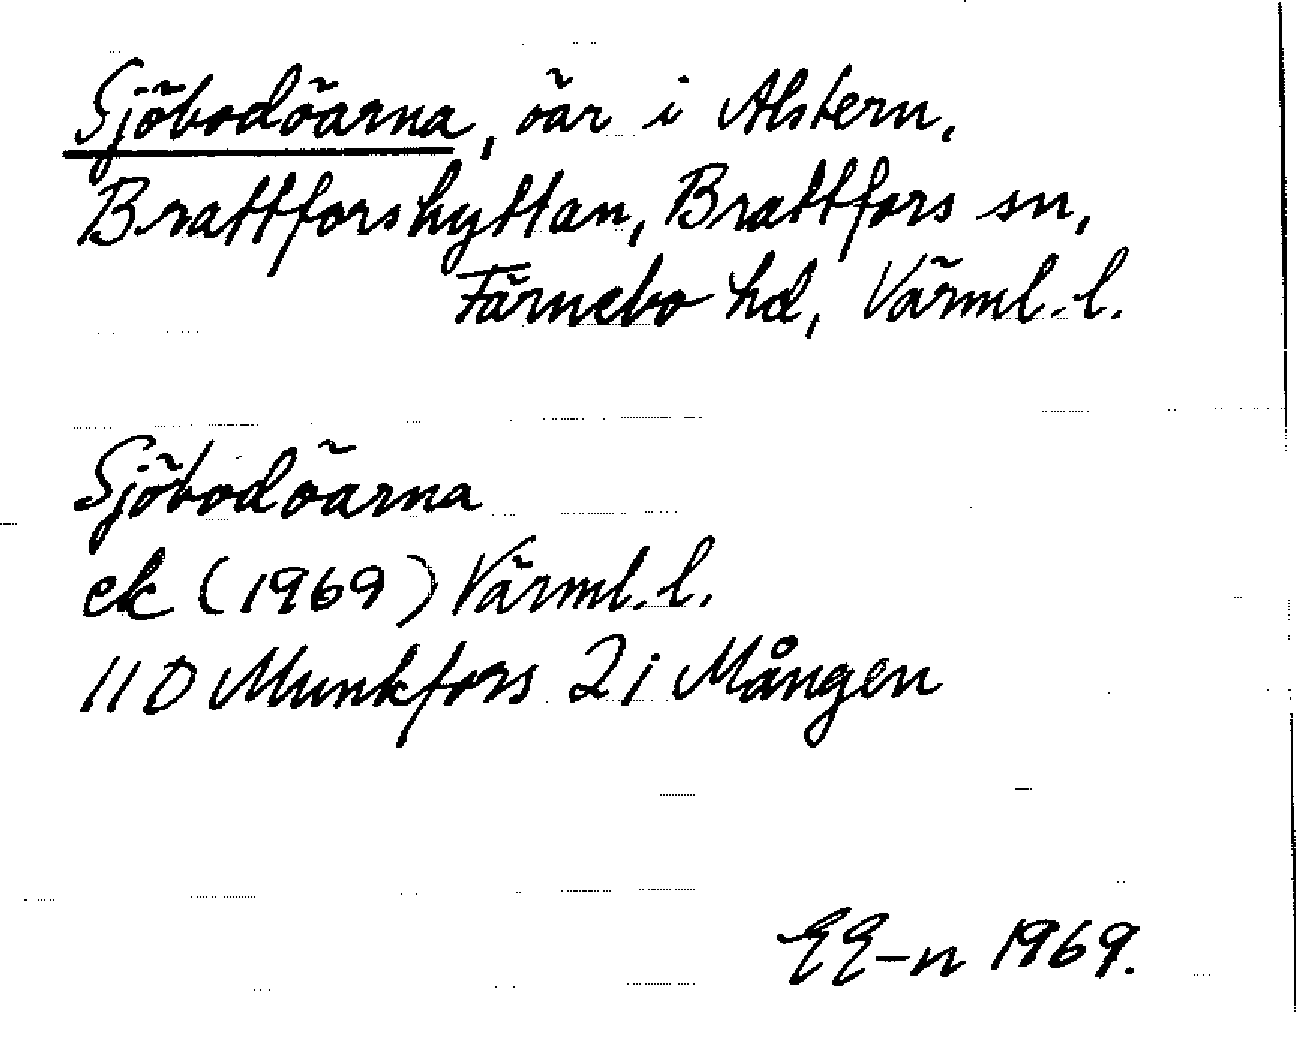 Sjöbodöarna, öar i Alstern,
Brattforshyttan, Brattfors sn,
Färnebo hd, Värml. l.
Sjöbodöarna
ek (1969) Värml. l.
11 D Munkfors 2 i Mången
EE-n 1969.